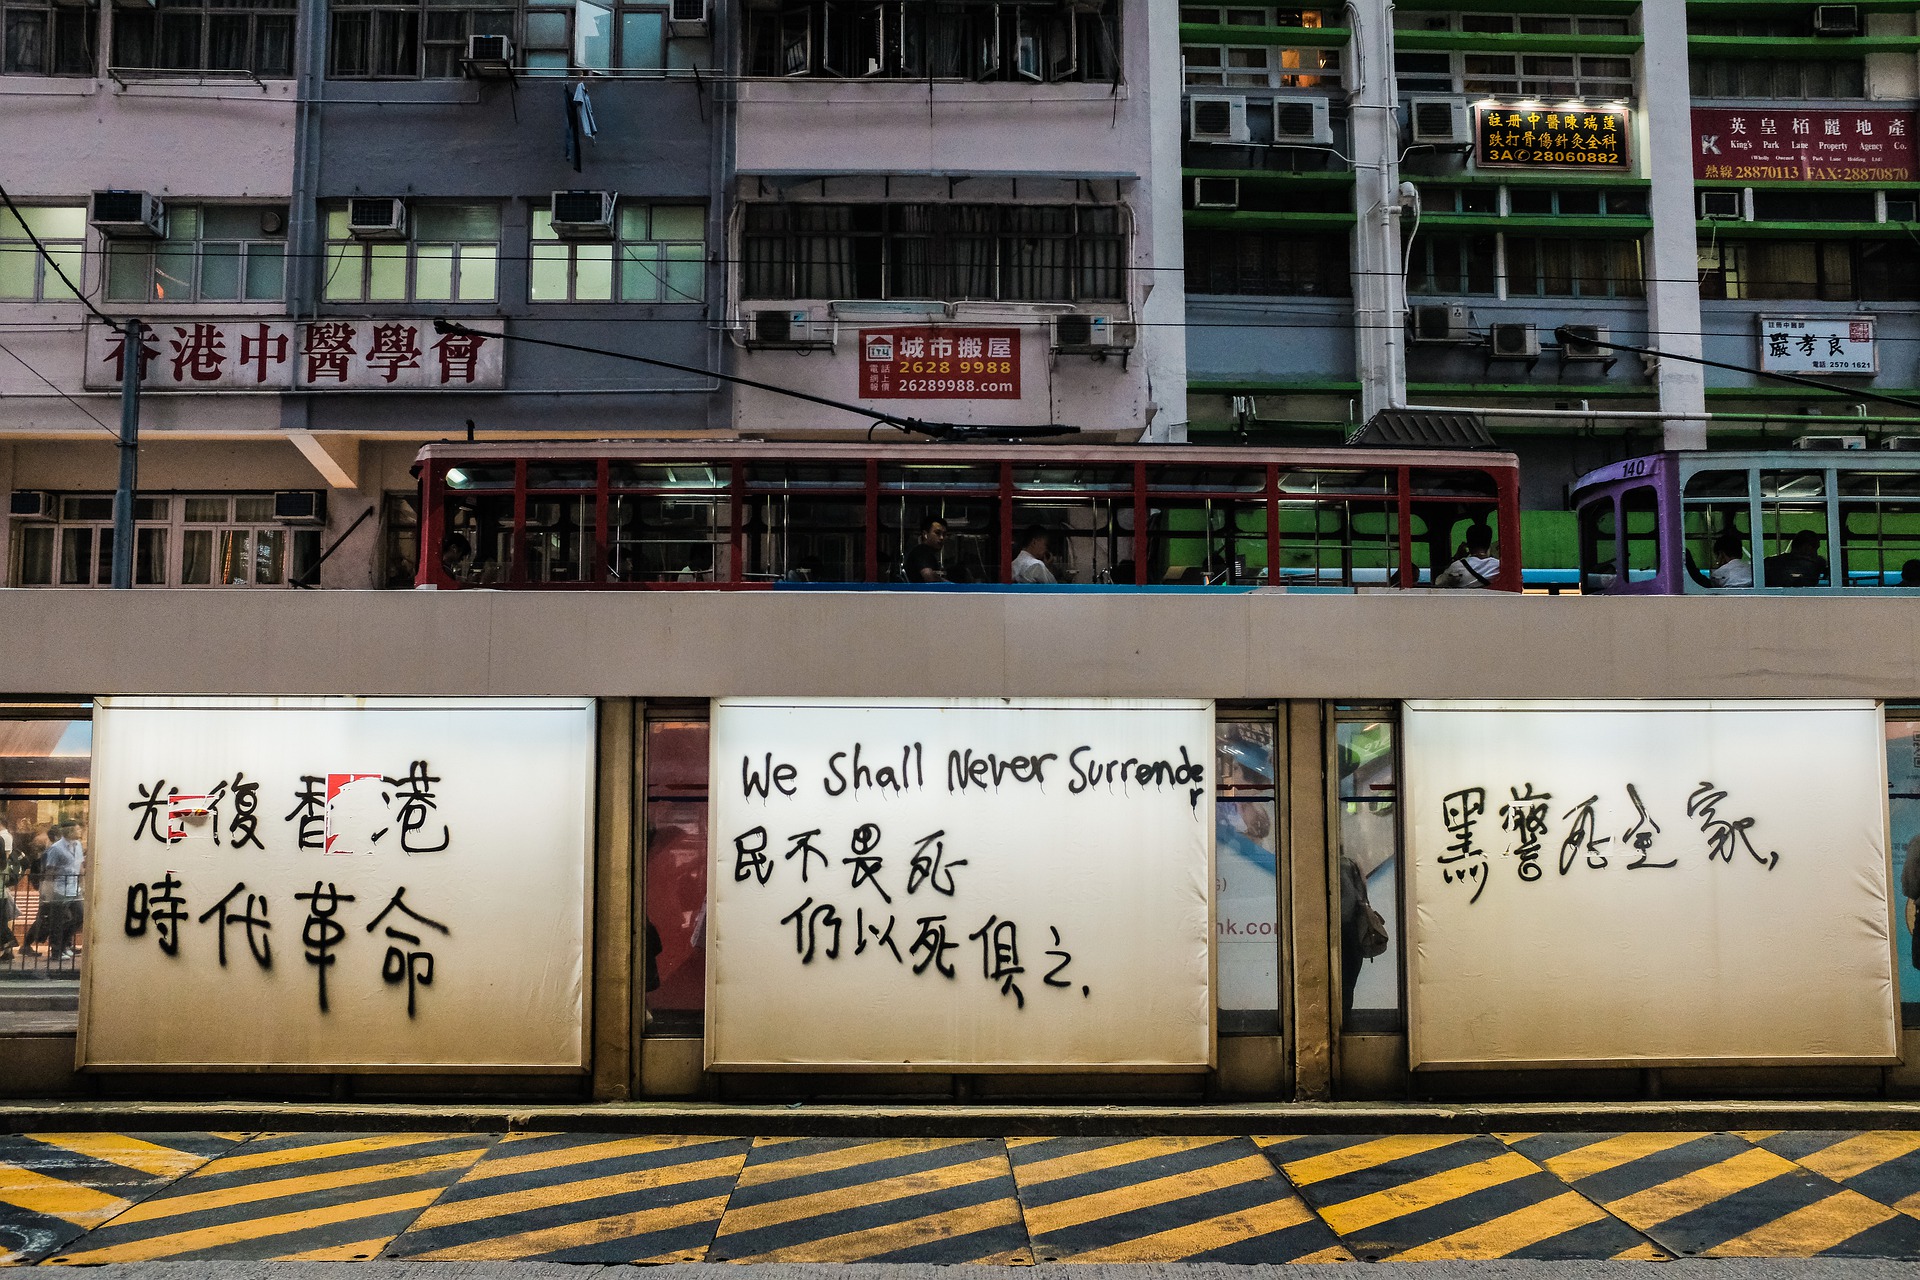 註册中醫陳瑞蓮
跌打骨傷針灸全科
3A✆28060882
英皇栢麗地產
K King's Park Lane Property Agency Co.
(Wholly Owned By Park Lane Holding Ltd)
熱線28870113 FAX:28870870
香港中醫學會
城市搬屋
電話 2628 9988
網上報價 26289988.com
註冊中醫師
嚴孝良
電話 2570 1621
140
光復香港
時代革命
We Shall Never Surrender
民不畏死
仍以死俱之.
黑警死全家,
nk.co